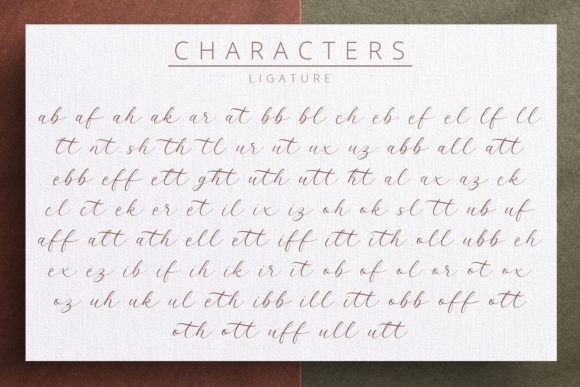 CHARACTERS
LIGATURE
ab af ah ak ar at bb bl ch eb ef el lf ll
tt nt sh th tl ur ut ux uz abb all att
ebb eff ett ght uth utt ht al ax az ck
cl ct ek er et il ix iz oh ok sl tt ub uf
aff att ath ell ett iff itt ith oll ubb eh
ex ez ib if ih ik ir it ob of ol or ot ox
oz uh uk ul eth ibb ill itt obb off ott
oth ott uff ull utt